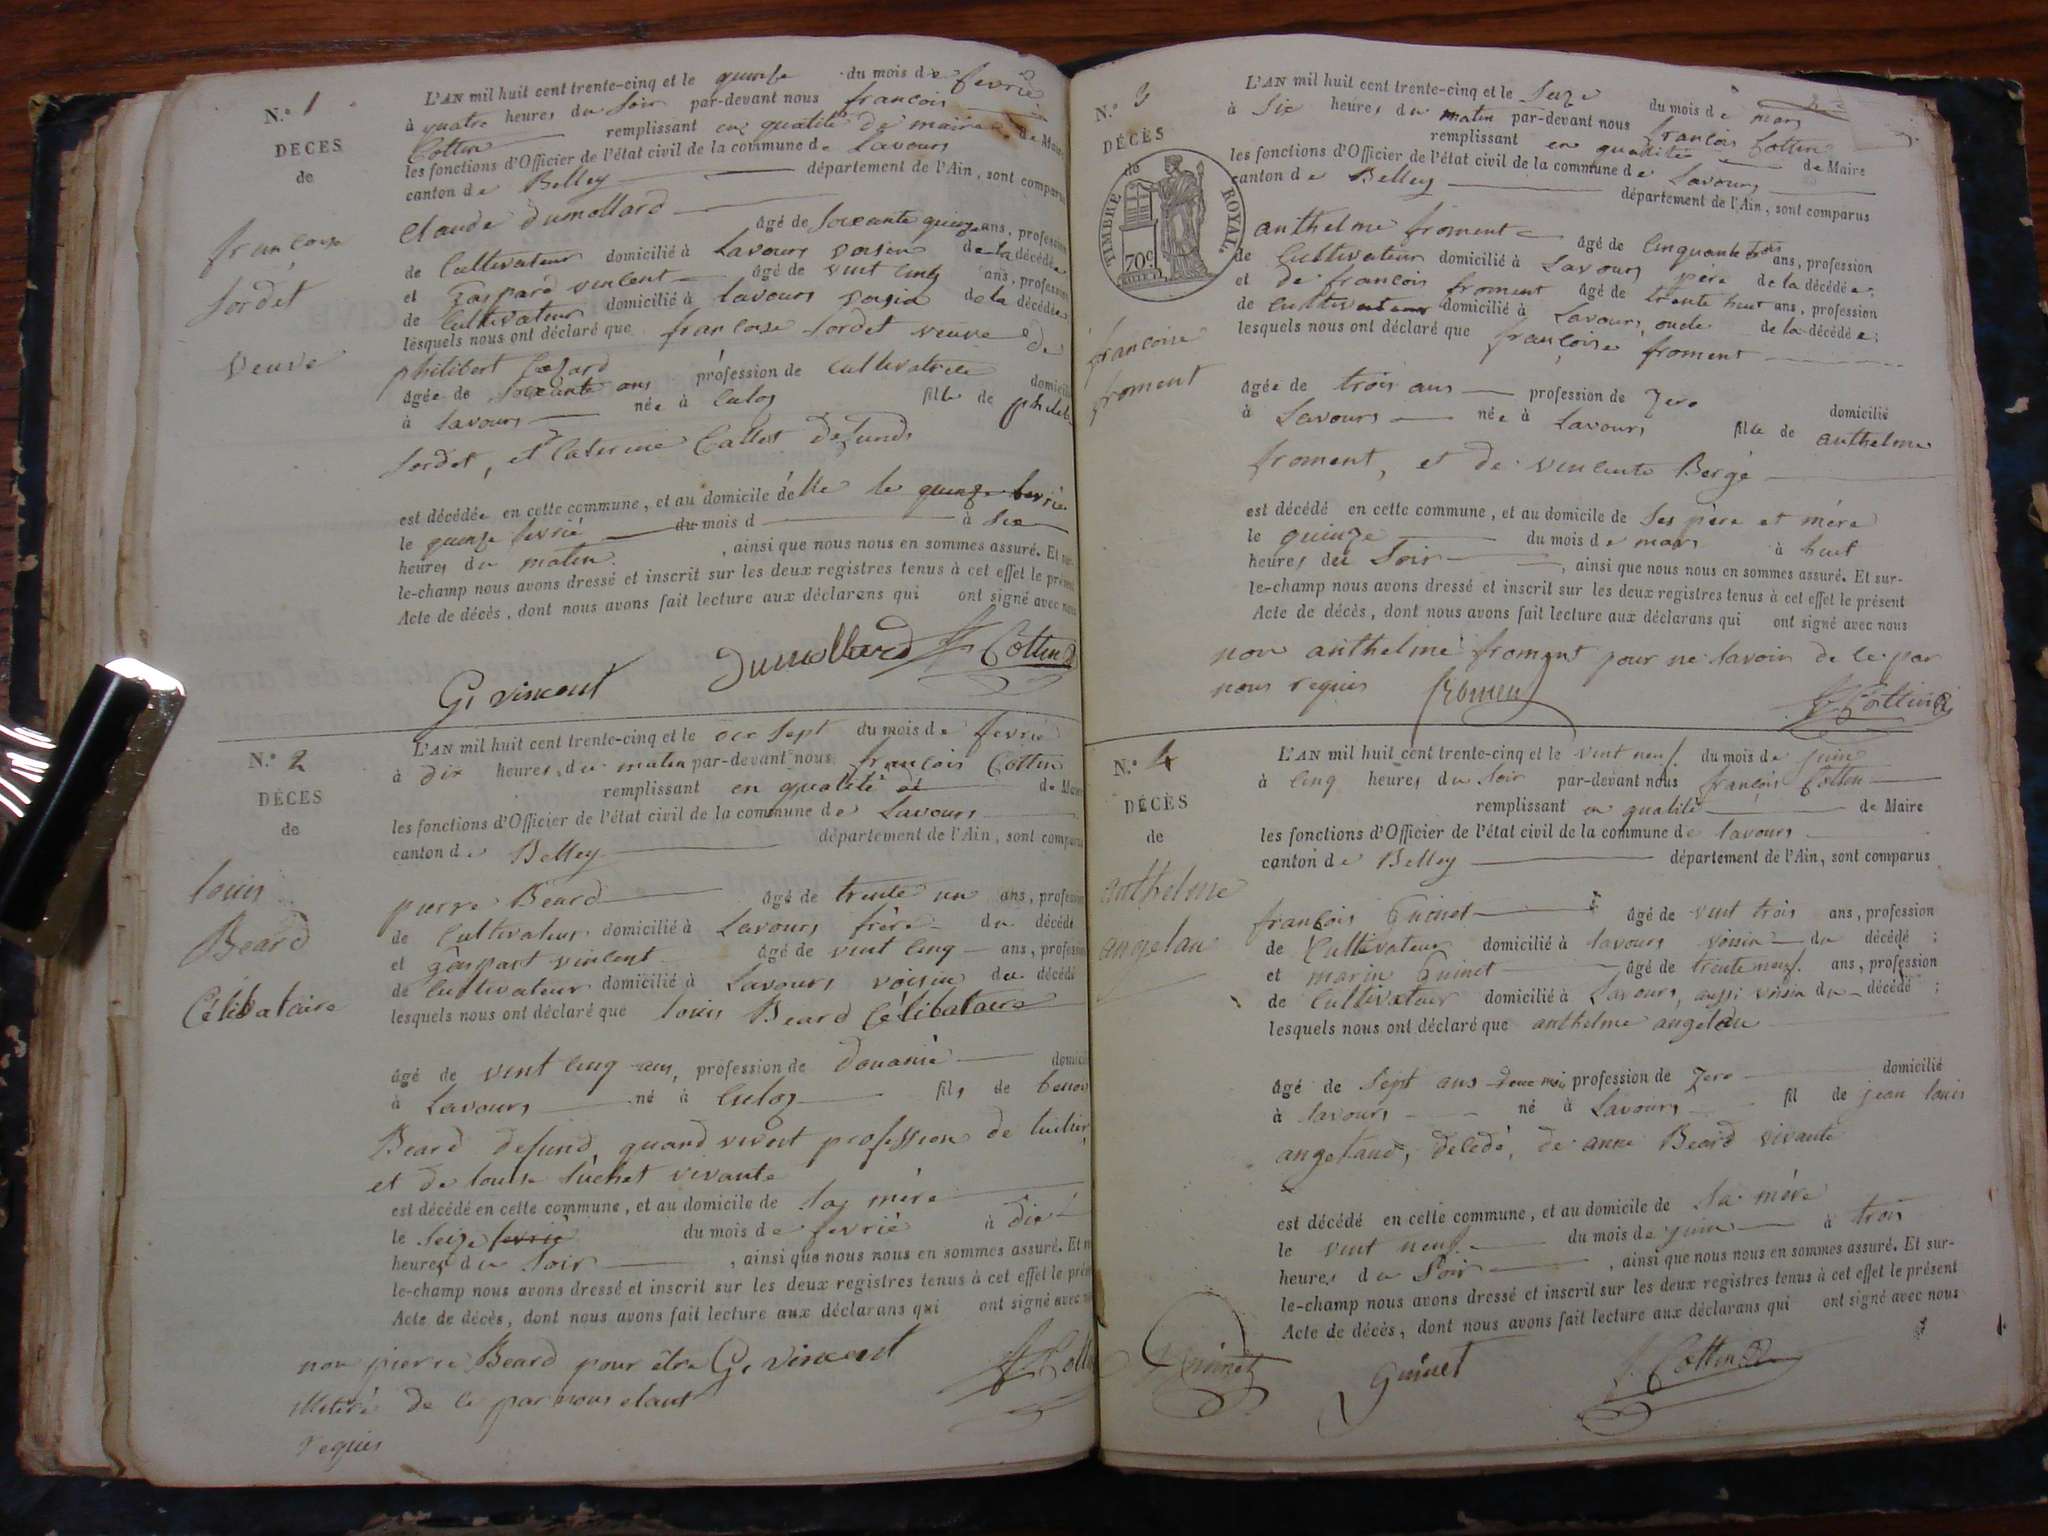 N.° 1
DÉCES
de
françoise
Sordet
veuve
L'AN mil huit cent trente-cinq et le quinse du mois de fevrié
à quatre heures du soir par-devant nous françois
Cottin remplissant en qualité de maire de Maire
les fonctions d'Officier de l'état civil de la commune de Lavours
canton de Belley département de l'Ain, sont comparus
Claude dumollard âgé de soixante quinze ans, profession
de Cultivateur domicilié à Lavours voisin de la décédée
et Gaspard vincent âgé de vint cinq ans, profession
de Cultivateur domicilié à lavours voisin de la décédée
lesquels nous ont déclaré que françoise Sordet veuve de
philibert
agée de soixante ans profession de cultivatrice domicilié
à lavours née à Culoz fille de
Sordet, et Caterine Callet defunds
est décédée en cette commune, et au domicile d'elle le quinze fevrié
le quinze fevrié du mois d à six
heures du matin. , ainsi que nous nous en sommes assuré. Et sur-
le-champ nous avons dressé et inscrit sur les deux registres tenus à cet effet le présent
Acte de décès, dont nous avons fait lecture aux déclarans qui ont signé avec nous
G, vincent Dumollard f Cottin
N.° 2
DÉCES
de
louis
Beard
Célibataire
L'AN mil huit cent trente-cinq et le sept du mois de fevrié
à dix heures du matin par-devant nous françois Cottin
remplissant en qualité de de Maire
les fonctions d'Officier de l'état civil de la commune de Lavours
canton de Belley département de l'Ain, sont comparus
pierre Beard âgé de trente un ans, profession
de Cultivateur domicilié à Lavours frère du décédé
et gaspart vincent âgé de vint cinq ans, profession
de Cultivateur domicilié à Lavours voisin du décédé
lesquels nous ont déclaré que louis Beard Célibataire
âgé de vint cinq ans, profession de douanié domicilié
à Lavours né à Culoz fils de benoi
Beard defund, quand vivent profession de tuilier,
et de louise luchet vivante
est décédé en cette commune, et au domicile de sa mère
le seize fevrié du mois de fevrié à dix
heures du soir , ainsi que nous nous en sommes assuré. Et
le-champ nous avons dressé et inscrit sur les deux registres tenus à cet effet le présent
Acte de décès, dont nous avons fait lecture aux déclarans qui ont signé avec nous
non pierre Beard pour être G, vincent f Cottin
illitéré de ce par nous etant
requis
N.° 3
DÉCÈS
de
TIMBRE ROYAL.
70c
françoise
froment
L'AN mil huit cent trente-cinq et le Seize du mois de mars
à Six heures du matin par-devant nous françois Cottin
remplissant en qualité de Maire
les fonctions d'Officier de l'état civil de la commune de Lavours
canton de Belley département de l'Ain, sont comparus
anthelme froment âgé de Cinquante trois ans, profession
de Cultivateur domicilié à Lavours père de la décédée;
et de françois froment âgé de trente huit ans, profession
de cultivateur domicilié à Lavours, oncle de la décédée;
lesquels nous ont déclaré que françoise froment
âgée de trois ans profession de zero domicilié
à Lavours née à Lavours fille de anthelme
froment, et de vincente Bergé
est décédé en cette commune, et au domicile de Ses père et mère
le quinze du mois de mars à huit
heures du Soir , ainsi que nous nous en sommes assuré. Et sur-
le-champ nous avons dressé et inscrit sur les deux registres tenus à cet effet le présent
Acte de décès, dont nous avons fait lecture aux déclarans qui ont signé avec nous
non anthelme froment pour ne savoir de ce par
nous requis froment f Cottin
N.° 4
DÉCÈS
de
anthelme
angelau
L'AN mil huit cent trente-cinq et le vint neuf du mois de juin
à cinq heures du soir par-devant nous françois Cottin
remplissant en qualité de Maire
les fonctions d'Officier de l'état civil de la commune de lavours
canton de Belley département de l'Ain, sont comparus
françois Guinet âgé de vint trois ans, profession
de Cultivateur domicilié à lavours voisin du décédé;
et marin Guinet âgé de trente neuf ans, profession
de Cultivateur domicilié à Lavours, aussi voisin du décédé;
lesquels nous ont déclaré que anthelme angelau
âgé de sept ans profession de zero domicilié
à lavours né à Lavours fil de jean louis
angelaud, décédé, de anne Beard vivante
est décédé en cette commune, et au domicile de Sa mère
le vint neuf du mois de juin à trois
heures du Soir , ainsi que nous nous en sommes assuré. Et sur-
le-champ nous avons dressé et inscrit sur les deux registres tenus à cet effet le présent
Acte de décès, dont nous avons fait lecture aux déclarans qui ont signé avec nous
Guinet Guinet f. Cottin